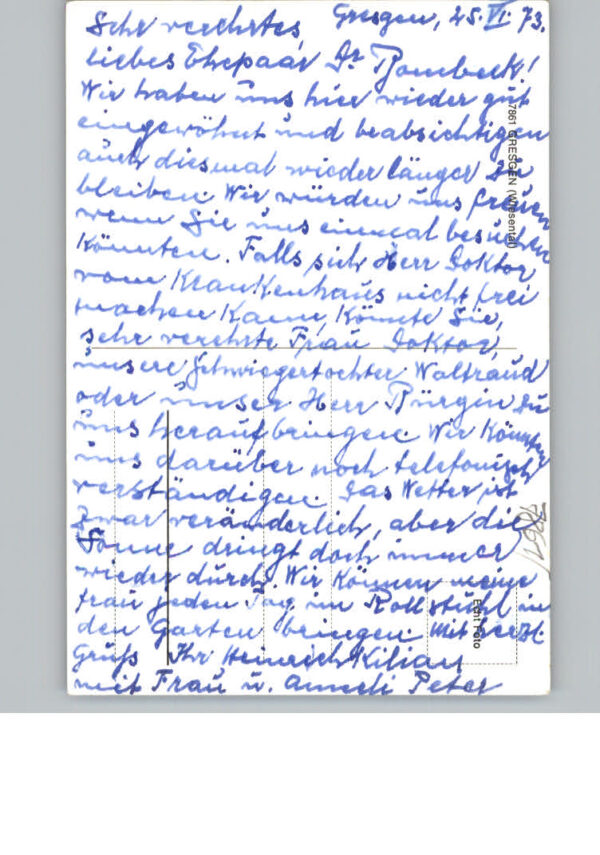 Gresgen, 25. VI. 73.
Sehr verehrtes,
liebes Ehepaar Dr. Rombeck!
Wir haben uns hier wieder gut
eingewöhnt und beabsichtigen
auch diesmal wieder länger zu
bleiben. Wir würden uns freuen
wenn Sie uns einmal besuchen
könnten. Falls sich Herr Doktor
vom Krankenhaus nicht frei
machen kann, könnte Sie,
sehr verehrte Frau Doktor,
unsere Schwiegertochter Waltraud
oder unser Herr Bürgin zu
uns heraufbringen. Wir könnten
uns darüber noch telefonisch
verständigen. Das Wetter ist
zwar veränderlich, aber die
Sonne dringt doch immer
wieder durch. Wir können meine
Frau jeden Tag im Rollstuhl in
den Garten bringen Mit herzl.
Gruß Ihr Heinrich Kilian
mit Frau u. Anneli Peter
7861 GRESGEN (Wiesental)
Echt Foto